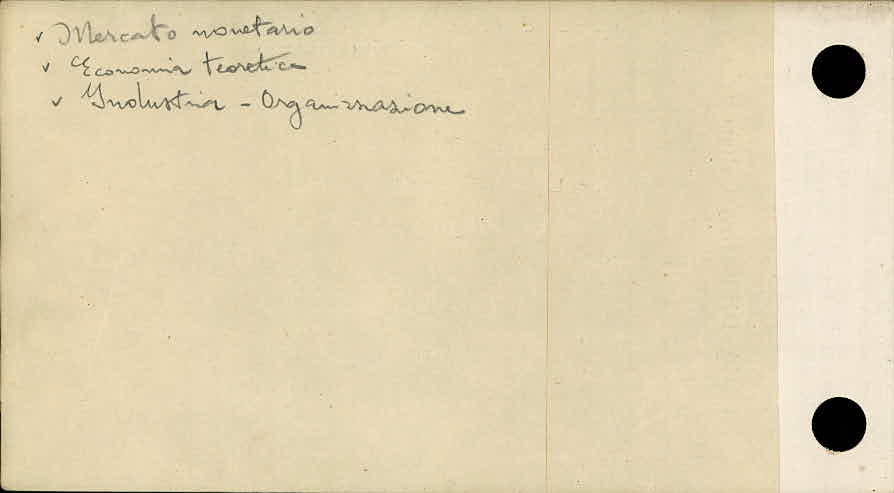 ✓ Mercato monetario
✓ Economia teoretica
✓ Industria - Organizzazione